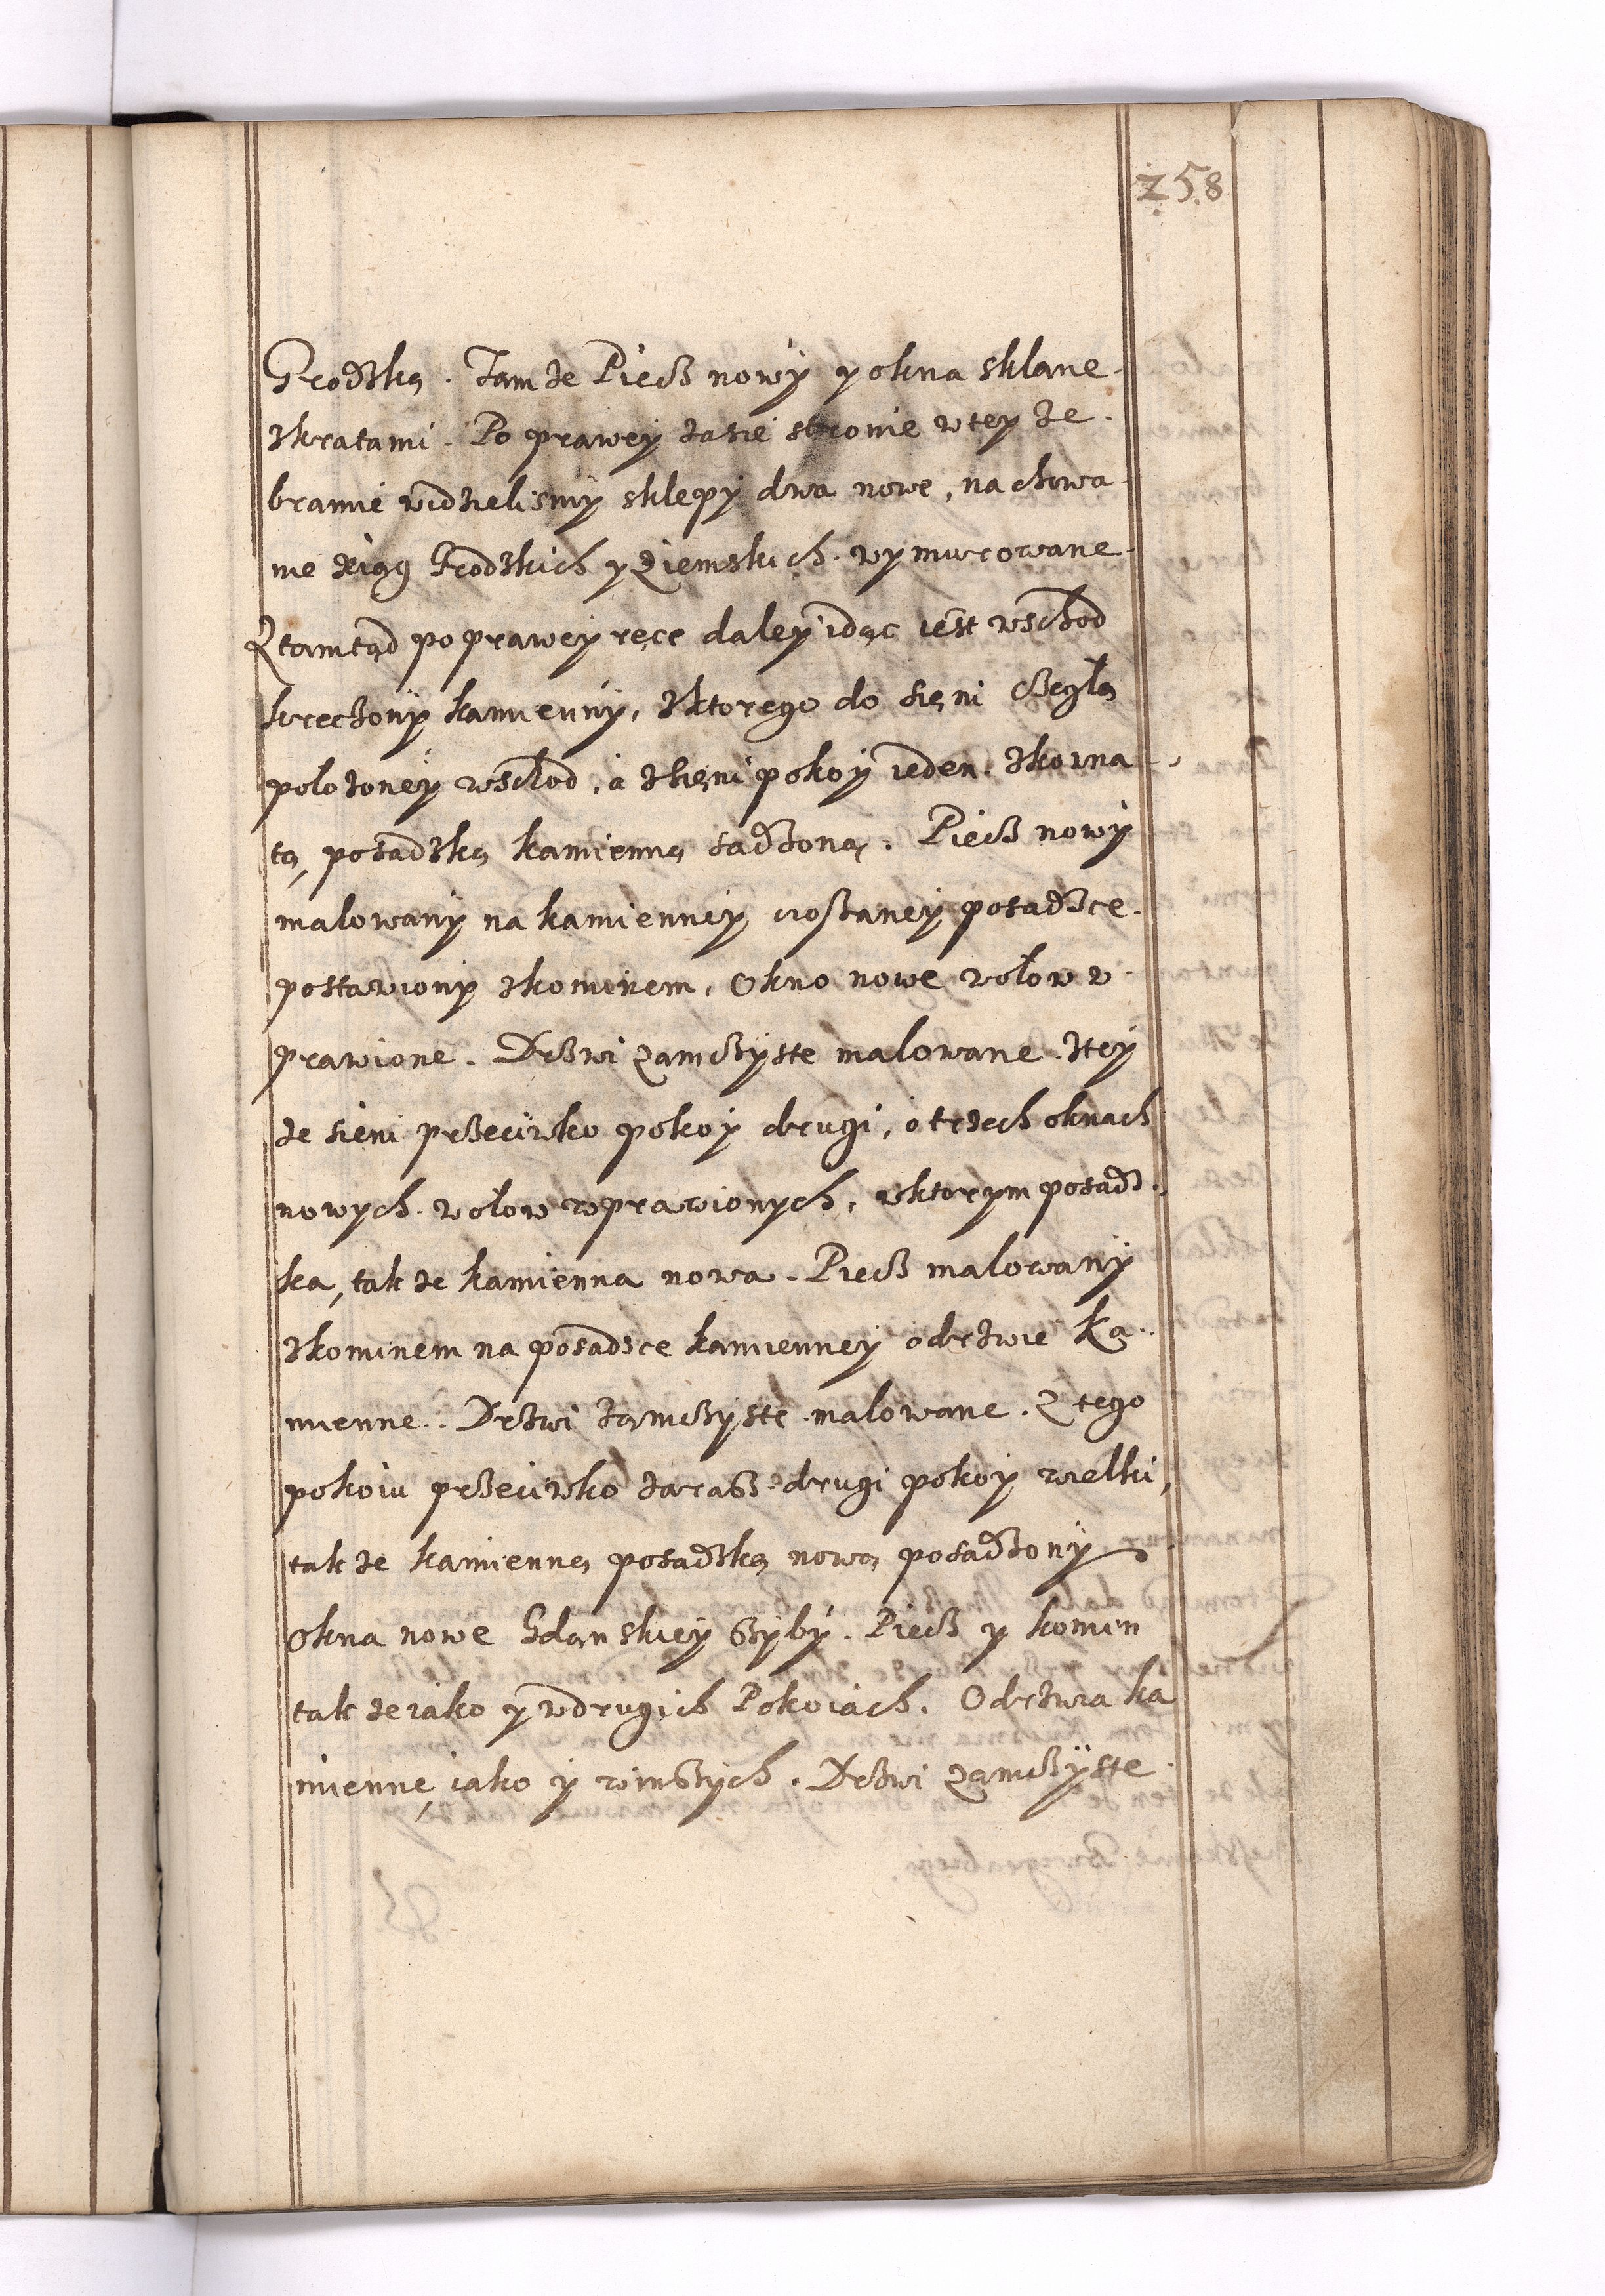 258
Grodzką. Tamże Piecz nowy y okna sklane
zkratami. Po prawey zasie stronie wtey że
bramie widzielismy sklepy dwa nowe, na chowa
nie xiąg Grodzkich y Ziemskich wymurowane
Ztamtąd po prawey ręce daley idąc iest wschod
kręczony kamienny, zktorego do sięni czegłą
położoney wschod, a zsięni pokoy ieden zkowna
tą, posadzką kamienną sadzoną. Piecz nowy
malowany na kamienney ciosaney posadzce
postawiony zkominem, Okno nowe wołow w
prawione. Drzwi zamczyste malowane. Ztey
że sieni przeciwko pokoy drugi, o trzech oknach
nowych wołow wprawionych, wktorym posadz
ka, takze kamienna nowa. Piecz malowany
zkominem na posadzce kamienney odrzwie Ka
mienne. Drzwi zamczyste malowane. Z tego
pokoiu przeciwko zarasz drugi pokoy wielki,
takze kamienną posadzką nową posadzony
Okna nowe Gdanskiey szyby. Piecz y komin
takze iako y wdrugich Pokoiach. Odrzwia ka
mienne, iako y winszych. Drzwi zamczyste